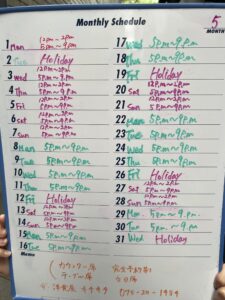 Monthly Schedule
5
MONTH
1 Mon 12pm~2pm
5pm~9pm
2 Tue Holiday
3 Wed 12pm~2pm
5pm~9pm
4 Thu 5pm~9pm
5 Fri 5pm~9pm
6 Sat 12pm~2pm
5pm~9pm
7 Sun 12pm~2pm
5pm~9pm
8 Mon 5pm~9pm
9 Tue 5pm~9pm
10 Wed 5pm~9pm
11 Thu 5pm~9pm
12 Fri Holiday
13 Sat 12pm~2pm
5pm~9pm
14 Sun 12pm~2pm
5pm~9pm
15 Mon 5pm~9pm
16 Tue 5pm~9pm
17 Wed 5pm~9pm
18 Thu 5pm~9pm
19 Fri Holiday
20 Sat 12pm~2pm
5pm~9pm
21 Sun 12pm~2pm
5pm~9pm
22 Mon 5pm~9pm
23 Tue 5pm~9pm
24 Wed 5pm~9pm
25 Thu 5pm~9pm
26 Fri Holiday
27 Sat 12pm~2pm
5pm~9pm
28 Sun 12pm~2pm
5pm~9pm
29 Mon 5pm~9pm
30 Tue 5pm~9pm
31 Wed Holiday
Memo
カウンター席
テーブル席
完全予約制